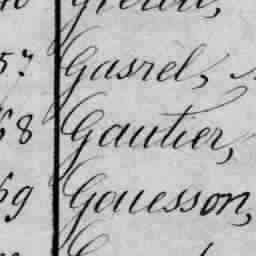 57 Gasrel,
68 Gautier,
69 Gouesson,